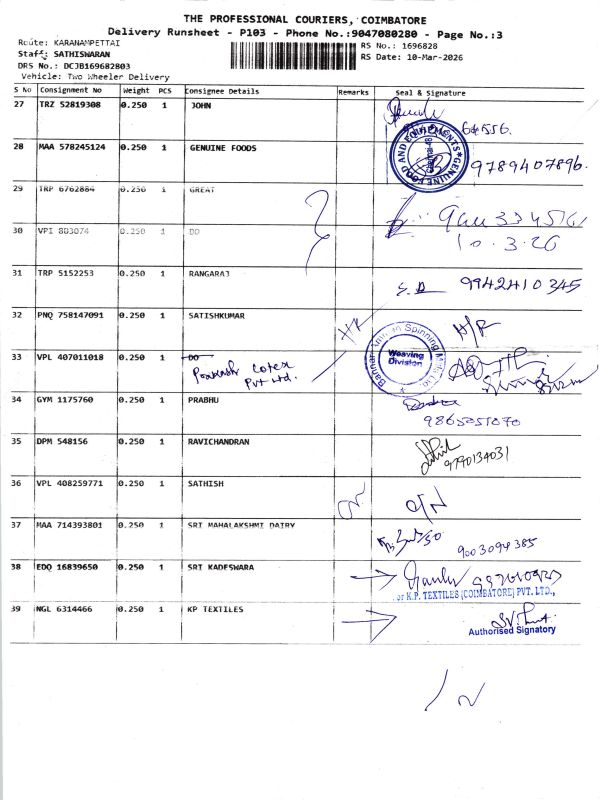 THE PROFESSIONAL COURIERS, COIMBATORE
Delivery Runsheet - P103 - Phone No.:9047080280 - Page No.:3
Route: KARANAMPETTAI
Staff: SATHISWARAN
DRS No.: DCJB169682803
Vehicle: Two Wheeler Delivery
RS No.: 1696828
RS Date: 10-Mar-2026
S No Consignment No Weight PCS Consignee Details Remarks Seal & Signature
27 TRZ 52819308 0.250 1 JOHN
64556.
28 MAA 578245124 0.250 1 GENUINE FOODS
GENUINE FOOD AND EQUIPMENTS
Chennai-48
9789407896.
29 TRP 6762884 0.250 1 GREAT
30 VPI 803074 0.250 1 DO
10.3.26
31 TRP 5152253 0.250 1 RANGARAJ
9942410345
32 PNQ 758147091 0.250 1 SATISHKUMAR
H/R
33 VPL 407011018 0.250 1 DO
Prakash Cotex
Pvt Ltd.
Weaving
Division
34 GYM 1175760 0.250 1 PRABHU
9865051070
35 DPM 548156 0.250 1 RAVICHANDRAN
9790134031
36 VPL 408259771 0.250 1 SATHISH
O/N
37 MAA 714393801 0.250 1 SRI MAHALAKSHMI DAIRY
9003094385
38 EDQ 16839650 0.250 1 SRI KADESWARA
39 NGL 6314466 0.250 1 KP TEXTILES
or K.P. TEXTILES (COIMBATORE) PVT. LTD.,
Authorised Signatory